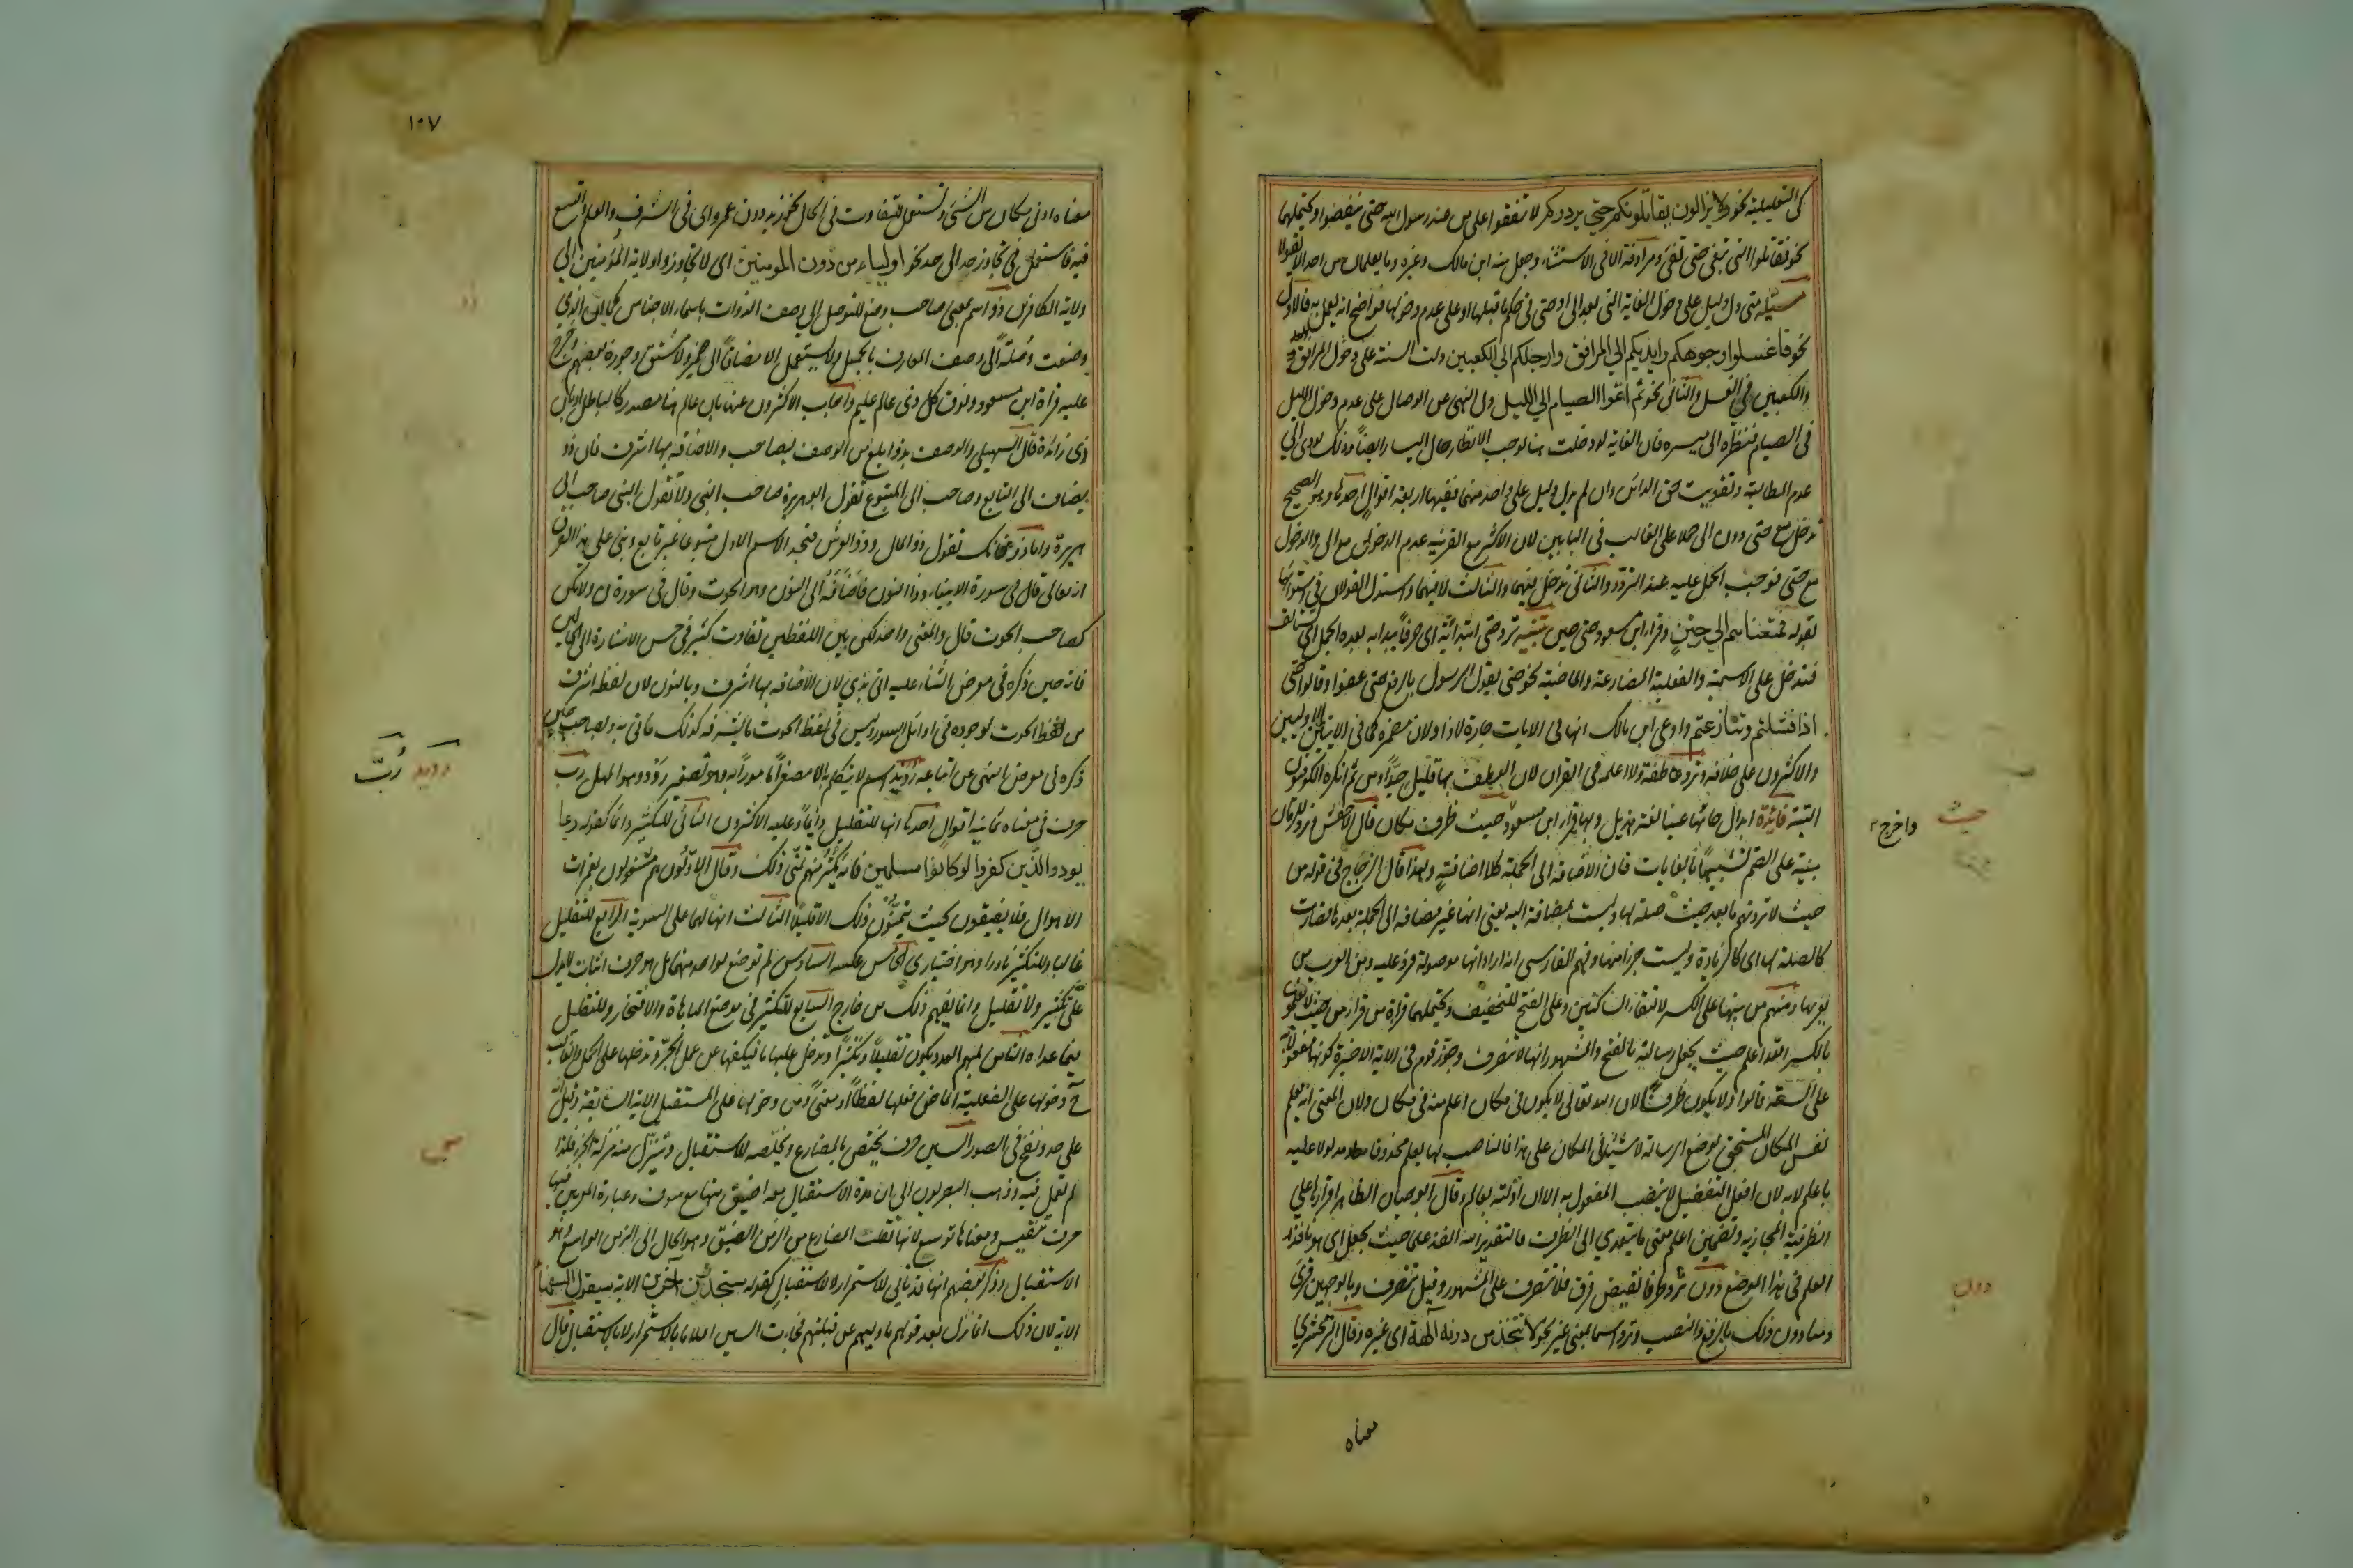 كى التعليلية نحو ولا يزالون يقاتلونكم حتى يردوكم لا تنفقوا على من عند رسول الله حتى ينفضوا ويحتملهما
نحو فقاتلوا التى تبغى حتى تفئ ومرادفة الا فى الاستثناء وجعل منه ابن مالك وغيره وما يعلمان من احد حتى يقولا
مسئلة متى دل دليل على دخول الغاية التى بعد الى او حتى فى حكم ما قبلها او على عدم دخولها فواضح انه يعمل به فالاول
نحو فاغسلوا وجوهكم وايديكم الى المرافق وارجلكم الى الكعبين دلت السنة على دخول المرافق
والكعبين فى الغسل والثانى نحو ثم اتموا الصيام الى الليل دل النهى عن الوصال على عدم دخول الليل
فى الصيام فنظرة الى ميسرة فان الغاية لو دخلت هنا لوجب الانظار حال اليسار ايضا وذلك يودى الى
عدم المطالبة وتفويت حق الدائن وان لم يدل دليل على واحد منهما ففيها اربعة اقوال احدها وهو الصحيح
تدخل مع حتى دون الى حملا على الغالب فى البابين لان الاكثر مع القرينة عدم الدخول مع الى والدخول
مع حتى فوجب الحمل عليه عند التردد والثانى تدخل فيهما والثالث لا فيهما واستدل القولان فى استوائهما
بقوله فمتعناهم الى حين وقرا ابن مسعود حتى حين تنبيه ترد حتى ابتدائية اى حرفا يبدا به بعده الجمل اى تستانف
فتدخل على الاسمية والفعلية المضارعة والماضية نحو حتى يقول الرسول بالرفع حتى عفوا وقالوا حتى
اذا فشلتم وتنازعتم وادعى ابن مالك انها فى الايات جارة لاذا ولان مضمرة كما فى الايتين الاوليين
والاكثرون على خلافه وترد عاطفة ولا اعلمه فى القران لان العطف بها قليل جدا ومن ثم انكره الكوفيون
البتة فائدة ابدال حائها عينا لغة هذيل وبها قرا ابن مسعود حيث ظرف مكان قال الاخفش وترد للزمان
مبنية على الضم تشبيها بالغايات فان الاضافة الى الجملة كلا اضافة ولهذا قال الزجاج فى قوله من
حيث لا ترونهم ما بعد حيث صلة لها وليست بمضافة اليه يعنى انها غير مضافة الى الجملة بعدها فصارت
كالصلة لها اى كالزيادة وليست جزا منها وفهم الفارسى انه اراد انها موصولة فرد عليه ومن العرب من
يعربها ومنهم من يبنيها على الكسر لالتقاء الساكنين وعلى الفتح للتخفيف ويحتملهما قراة من قرا من حيث لا يعلمون
بالكسر الله اعلم حيث يجعل رسالته بالفتح والمشهور انها لا تتصرف وجوز قوم فى الاية الاخيرة كونها مفعولا به
على السعة قالوا ولا يكون ظرفا لان الله تعالى لا يكون فى مكان اعلم منه فى مكان ولان المعنى انه يعلم
نفس المكان المستحق لوضع الرسالة لا شيئا فى المكان على هذا فالناصب لها يعلم محذوفا مدلولا عليه
باعلم لا به لان افعل التفضيل لا ينصب المفعول به الا ان اولته بعالم وقال ابو حيان الظاهر اقرارها على
الظرفية المجازية وتضمين اعلم معنى ما يتعدى الى الظرف فالتقدير الله انفذ علما حيث يجعل اى هو نافذ
العلم فى هذا الموضع دون ترد ظرفا نقيض فوق فلا تتصرف على المشهور وقيل تتصرف وبالوجهين قرئ
ومنا دون ذلك بالرفع والنصب وترد اسما بمعنى غير نحو لا تتخذ من دونه الهة اى غيره وقال الزمخشرى
معناه
حيث
واخرج
دون
١٠٧
معناه ادنى مكان من الشئ وتستعمل للتفاوت فى الحال نحو زيد دون عمرو اى فى الشرف والعلم واتسع
فيه فاستعمل فى تجاوز حد الى حد نحو اولياء من دون المومنين اى لا تجاوزوا ولاية المؤمنين الى
ولاية الكافرين ذو اسم بمعنى صاحب وضع للتوصل الى وصف الذوات باسماء الاجناس كما ان الذى
وضعت وصلة الى وصف المعارف بالجمل ولا يستعمل الا مضافا الى ضمير ولا مشتق وجوزه بعضهم وخرج
عليه قراة ابن مسعود وفوق كل ذى عالم عليم واجاب الاكثرون عنها بان عالم هنا مصدر كالباطل او بان
ذى زائدة قال السهيلى والوصف بذو ابلغ من الوصف بصاحب والاضافة بها اشرف فان ذو
يضاف الى التابع وصاحب الى المتبوع تقول ابو هريرة صاحب النبى ولا تقول النبى صاحب ابى
هريرة واما ذو فانك تقول ذو المال وذو العرش فتجد الاسم الاول متبوعا غير تابع وبنى على هذا الفرق
انه تعالى قال فى سورة الانبياء وذا النون فاضافه الى النون وهو الحوت وقال فى سورة ن ولا تكن
كصاحب الحوت قال والمعنى واحد لكن بين اللفظين تفاوت كثير فى حسن الاشارة الى الحالين
فانه حين ذكره فى موضع الثناء عليه اتى بذى لان الاضافة بها اشرف وبالنون لان لفظه اشرف
من لفظ الحوت لوجوده فى اوائل السور وليس فى لفظ الحوت ما يشرفه كذلك فاتى به وبصاحب حين
ذكره فى موضع النهى عن اتباعه رويد اسم لا يتكلم به الا مصغرا مامورا به وهو تصغير رود وهو المهل رب
حرف فى معناه ثمانية اقوال احدها انها للتقليل دائما وعليه الاكثرون الثانى للتكثير دائما كقوله ربما
يود الذين كفروا لو كانوا مسلمين فانه يكثر منهم تمنى ذلك وقال الاولون هم مشغولون بغمرات
الاهوال فلا يفيقون بحيث يتمنون ذلك الا قليلا الثالث انها لهما على السوية الرابع للتقليل
غالبا وللتكثير نادرا وهو اختيارى الخامس عكسه السادس لم توضع لواحد منهما بل هو حرف اثبات لا يدل
على تكثير ولا تقليل وانما يفهم ذلك من خارج السابع للتكثير فى موضع المباهاة والافتخار وللتقليل
فيما عداه الثامن لمبهم العدد يكون تقليلا وتكثيرا وتدخل عليها ما فيكفها عن عمل الجر وتدخلها على الجمل والغالب
ح دخولها على الفعلية الماضى فعلها لفظا او معنى ومن دخولها على المستقبل الاية السابقة وقيل انه
على حد ونفخ فى الصور السين حرف يختص بالمضارع ويخلصه للاستقبال ويتنزل منه منزلة الجزء فلذا
لم تعمل فيه وذهب البصريون الى ان مدة الاستقبال معه اضيق منها مع سوف وعبارة المعربين فيها
حرف تنفيس ومعناها توسيع لانها نقلت المضارع من الزمن الضيق وهو الحال الى الزمن الواسع وهو
الاستقبال وذكر بعضهم انها قد تاتى للاستمرار لا للاستقبال كقوله ستجدون آخرين الاية سيقول السفهاء
الاية لان ذلك انما نزل بعد قولهم ما وليهم عن قبلتهم فجاءت السين اعلاما بالاستمرار لا بالاستقبال قال
ذو
رويد رُبّ